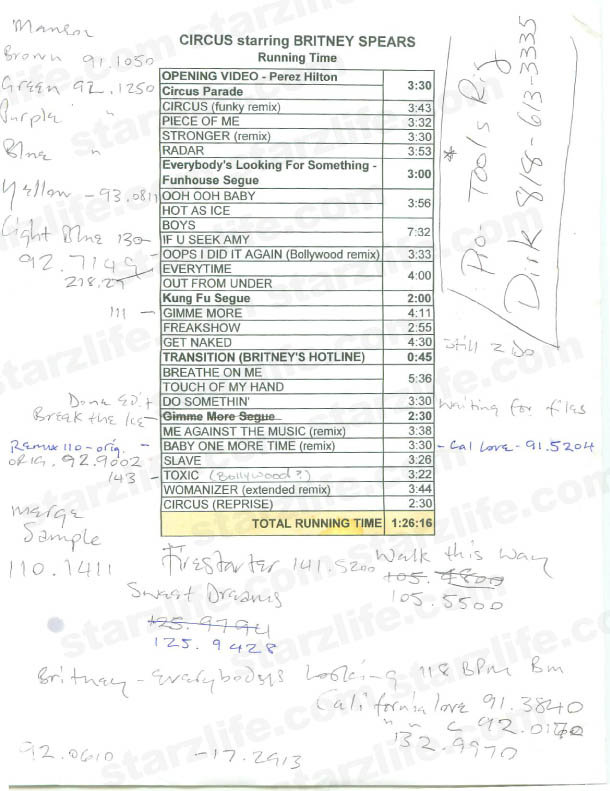 Manson
Brown 91.1050
Green 92.1250
Purple "
Blue "
Yellow - 93.0811
Light Blue 130
92.7145
218.27
111 -
CIRCUS starring BRITNEY SPEARS
Running Time
OPENING VIDEO - Perez Hilton
Circus Parade 3:30
CIRCUS (funky remix) 3:43
PIECE OF ME 3:32
STRONGER (remix) 3:30
RADAR 3:53
Everybody's Looking For Something -
Funhouse Segue 3:00
OOH OOH BABY
HOT AS ICE 3:56
BOYS
IF U SEEK AMY 7:32
OOPS I DID IT AGAIN (Bollywood remix) 3:33
EVERYTIME
OUT FROM UNDER 4:00
Kung Fu Segue 2:00
GIMME MORE 4:11
FREAKSHOW 2:55
GET NAKED 4:30
TRANSITION (BRITNEY'S HOTLINE) 0:45
BREATHE ON ME
TOUCH OF MY HAND 5:36
DO SOMETHIN' 3:30
Gimme More Segue 2:30
ME AGAINST THE MUSIC (remix) 3:38
BABY ONE MORE TIME (remix) 3:30
SLAVE 3:26
TOXIC (Bollywood?) 3:22
WOMANIZER (extended remix) 3:44
CIRCUS (REPRISE) 2:30
TOTAL RUNNING TIME 1:26:16
* Pro Tools Rig
Dirk 818-613-3335
Still 2 Do
Waiting for files
- Cal Love - 91.5204
Done Edit
Break the Ice
Remix 110 - orig. -
ORIG. 92.9002
143 -
Merge
Sample
110.1411
Firestarter 141.5200
Walk this Way
105.4800
105.5500
Sweet Dreams
125.9794
125.9428
Britney - everybodys looking 118 BPM Bm
California love 91.3840
" " C
132.9970
92.0610 -17.2913
starzlife.com